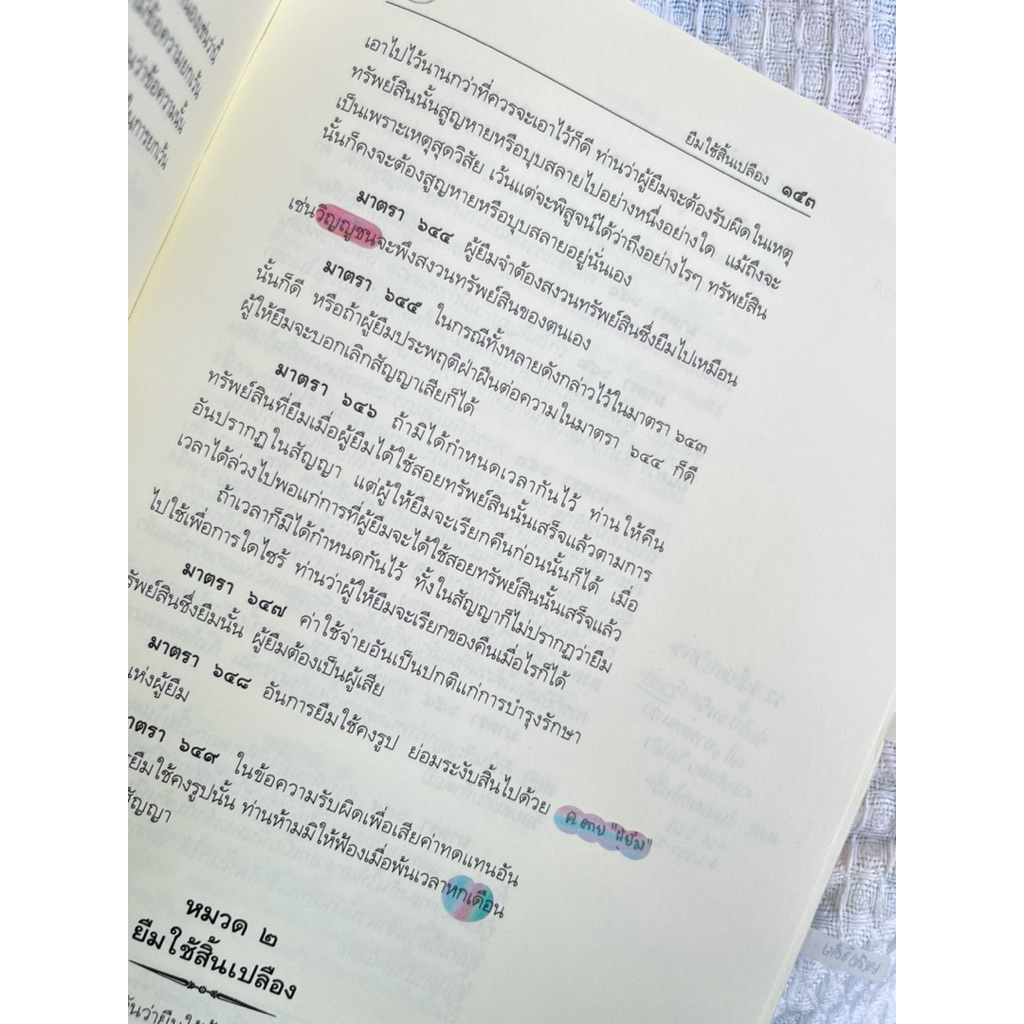 ยืมใช้สิ้นเปลือง ๑๕๓
เอาไปไว้นานกว่าที่ควรจะเอาไว้ก็ดี ท่านว่าผู้ยืมจะต้องรับผิดในเหตุ
ทรัพย์สินนั้นสูญหายหรือบุบสลายไปอย่างหนึ่งอย่างใด แม้ถึงจะ
เป็นเพราะเหตุสุดวิสัย เว้นแต่จะพิสูจน์ได้ว่าถึงอย่างไรๆ ทรัพย์สิน
นั้นก็คงจะต้องสูญหายหรือบุบสลายอยู่นั่นเอง
มาตรา ๖๔๔ ผู้ยืมจำต้องสงวนทรัพย์สินซึ่งยืมไปเหมือน
เช่นวิญญูชนจะพึงสงวนทรัพย์สินของตนเอง
มาตรา ๖๔๕ ในกรณีทั้งหลายดังกล่าวไว้ในมาตรา ๖๔๓
นั้นก็ดี หรือถ้าผู้ยืมประพฤติฝ่าฝืนต่อความในมาตรา ๖๔๔ ก็ดี
ผู้ให้ยืมจะบอกเลิกสัญญาเสียก็ได้
มาตรา ๖๔๖ ถ้ามิได้กำหนดเวลากันไว้ ท่านให้คืน
ทรัพย์สินที่ยืมเมื่อผู้ยืมได้ใช้สอยทรัพย์สินนั้นเสร็จแล้วตามการ
อันปรากฏในสัญญา แต่ผู้ให้ยืมจะเรียกคืนก่อนนั้นก็ได้ เมื่อ
เวลาได้ล่วงไปพอแก่การที่ผู้ยืมจะได้ใช้สอยทรัพย์สินนั้นเสร็จแล้ว
ถ้าเวลาก็มิได้กำหนดกันไว้ ทั้งในสัญญาก็ไม่ปรากฏว่ายืม
ไปใช้เพื่อการใดไซร้ ท่านว่าผู้ให้ยืมจะเรียกของคืนเมื่อไรก็ได้
มาตรา ๖๔๗ ค่าใช้จ่ายอันเป็นปกติแก่การบำรุงรักษา
ทรัพย์สินซึ่งยืมนั้น ผู้ยืมต้องเป็นผู้เสีย
มาตรา ๖๔๘ อันการยืมใช้คงรูป ย่อมระงับสิ้นไปด้วย ค.ตาย "ผู้ยืม"
แห่งผู้ยืม
มาตรา ๖๔๙ ในข้อความรับผิดเพื่อเสียค่าทดแทนอัน
ยืมใช้คงรูปนั้น ท่านห้ามมิให้ฟ้องเมื่อพ้นเวลาหกเดือน
สัญญา
หมวด ๒
ยืมใช้สิ้นเปลือง